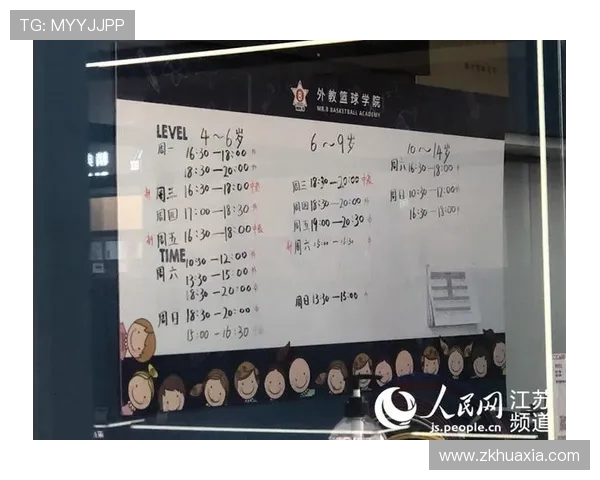 TG: MYYJJPP
外教篮球学院
MR.B BASKETBALL ACADEMY
LEVEL 4～6岁 6～9岁 10～14岁
周一 16:30—18:00
18:30—20:00
周三 16:30—18:00
周四 17:00—18:30
周五 16:30—18:00
TIME 10:30—12:00
周六 13:30—15:00
18:30—20:00
周日 18:30—20:00
15:00—16:30
周三 18:30—20:00
周四 18:30—20:00
周五 19:00—20:30
周六 15:00—16:30
周日 13:30—15:00
周六 16:30—18:00
周日 10:30—12:00
16:30—18:00
人民网 江苏频道
js.people.cn
www.zkhuaxia.com